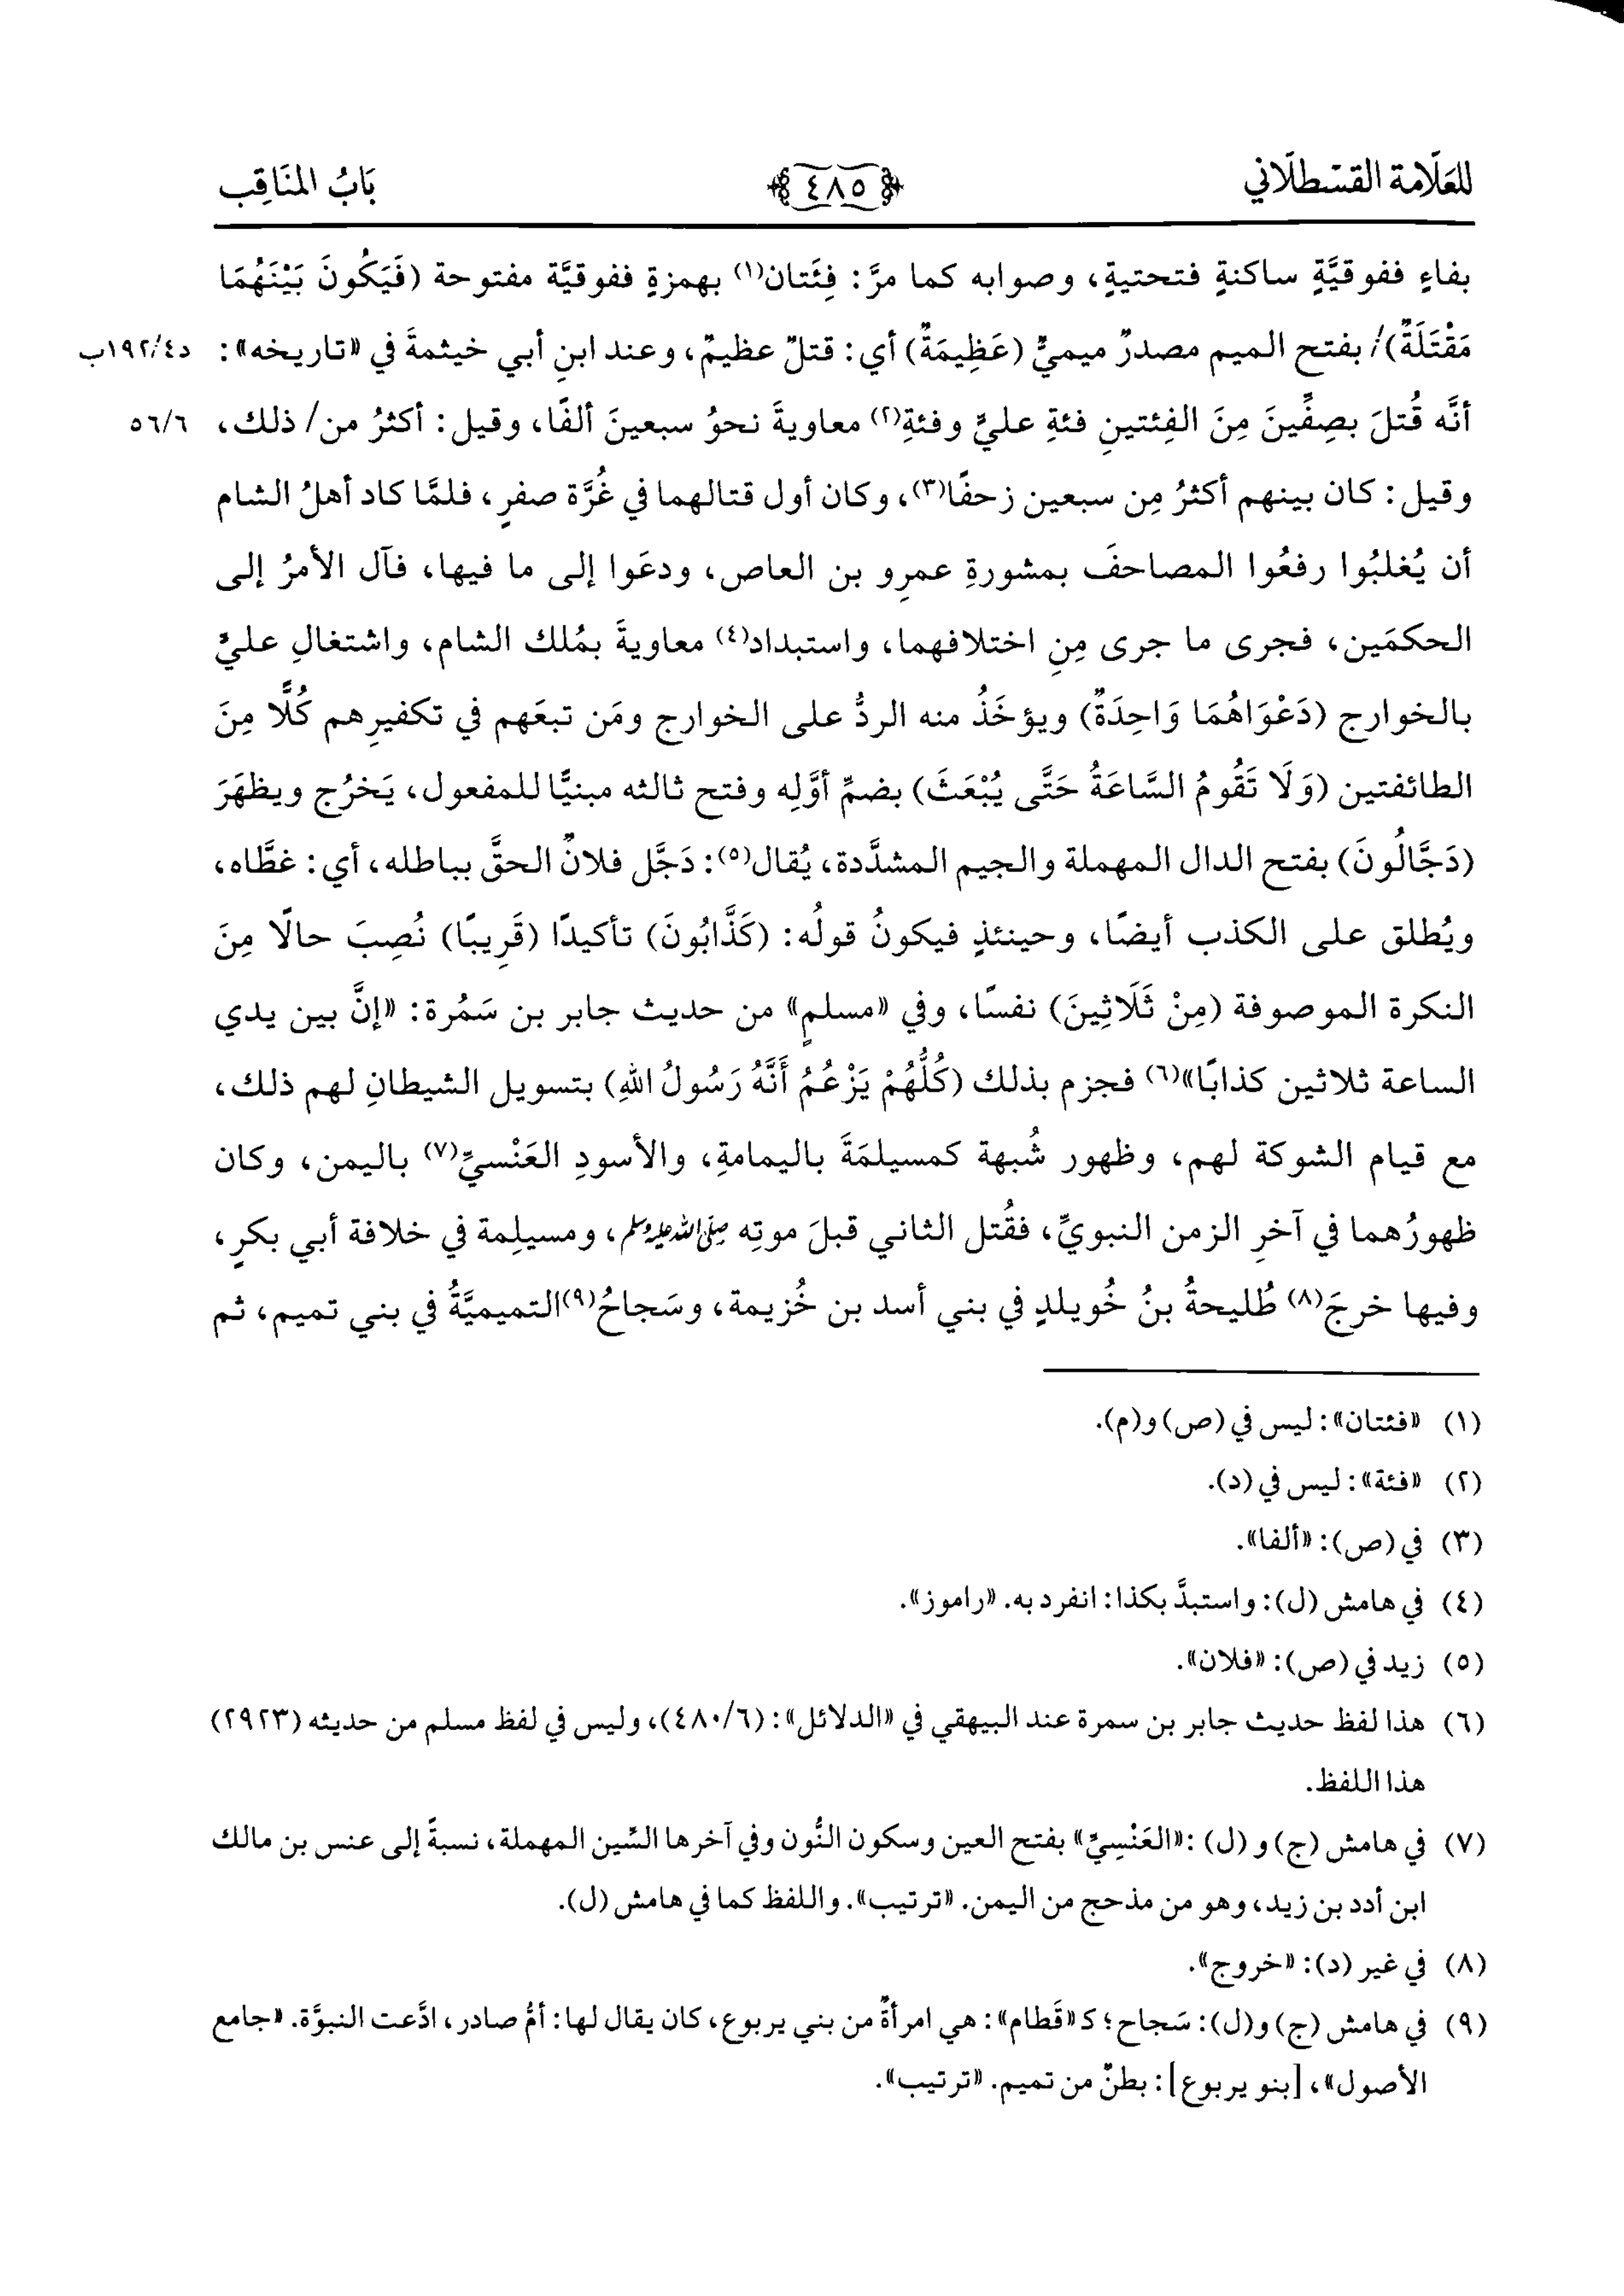 للعلامة القسطلاني
٤٨٥
بَابُ المنَاقِب
بفاءٍ ففوقيَّةٍ ساكنةٍ فتحتيةٍ، وصوابه كما مرَّ: فِئَتان(١) بهمزةٍ ففوقيَّة مفتوحة (فَيَكُونَ بَيْنَهُمَا
مَقْتَلَةٌ)/ بفتح الميم مصدرٌ ميميٌّ (عَظِيمَةٌ) أي: قتلٌ عظيمٌ، وعند ابنِ أبي خيثمةَ في «تاريخه»:
د١٩٢/٤ب
أنَّه قُتلَ بصِفِّينَ مِنَ الفِئتينِ فئةِ عليٍّ وفئةِ(٢) معاويةَ نحوُ سبعينَ ألفًا، وقيل: أكثرُ من/ ذلك،
٥٦/٦
وقيل: كان بينهم أكثرُ مِن سبعين زحفًا(٣)، وكان أول قتالهما في غُرَّة صفرٍ، فلمَّا كاد أهلُ الشام
أن يُغلبُوا رفعُوا المصاحفَ بمشورةِ عمرِو بن العاص، ودعَوا إلى ما فيها، فآل الأمرُ إلى
الحكمَين، فجرى ما جرى مِنِ اختلافهما، واستبداد(٤) معاويةَ بمُلك الشام، واشتغالِ عليٍّ
بالخوارج (دَعْوَاهُمَا وَاحِدَةٌ) ويؤخَذُ منه الردُّ على الخوارج ومَن تبعَهم في تكفيرِهم كُلًّا مِنَ
الطائفتين (وَلَا تَقُومُ السَّاعَةُ حَتَّى يُبْعَثَ) بضمِّ أوَّلِه وفتح ثالثه مبنيًّا للمفعول، يَخرُج ويظهَرَ
(دَجَّالُونَ) بفتح الدال المهملة والجيم المشدَّدة، يُقال(٥): دَجَّل فلانٌ الحقَّ بباطله، أي: غطَّاه،
ويُطلق على الكذب أيضًا، وحينئذٍ فيكونُ قولُه: (كَذَّابُونَ) تأكيدًا (قَرِيبًا) نُصِبَ حالًا مِنَ
النكرة الموصوفة (مِنْ ثَلَاثِينَ) نفسًا، وفي «مسلمٍ» من حديث جابر بن سَمُرة: «إنَّ بين يدي
الساعة ثلاثين كذابًا»(٦) فجزم بذلك (كُلُّهُمْ يَزْعُمُ أَنَّهُ رَسُولُ اللهِ) بتسويل الشيطانِ لهم ذلك،
مع قيام الشوكة لهم، وظهور شُبهة كمسيلمَةَ باليمامةِ، والأسودِ العَنْسيِّ(٧) باليمن، وكان
ظهورُهما في آخرِ الزمن النبويِّ، فقُتل الثاني قبلَ موتِه ﷺ، ومسيلِمة في خلافة أبي بكرٍ،
وفيها خرجَ(٨) طُليحةُ بنُ خُويلدٍ في بني أسد بن خُزيمة، وسَجاحُ(٩) التميميَّةُ في بني تميم، ثم
(١) «فئتان»: ليس في (ص) و(م).
(٢) «فئة»: ليس في (د).
(٣) في (ص): «ألفا».
(٤) في هامش (ل): واستبدَّ بكذا: انفرد به. «راموز».
(٥) زيد في (ص): «فلان».
(٦) هذا لفظ حديث جابر بن سمرة عند البيهقي في «الدلائل»: (٤٨٠/٦)، وليس في لفظ مسلم من حديثه (٢٩٢٣)
هذا اللفظ.
(٧) في هامش (ج) و (ل) :«العَنْسِيِّ» بفتح العين وسكون النُّون وفي آخرها السِّين المهملة، نسبةً إلى عنس بن مالك
ابن أدد بن زيد، وهو من مذحج من اليمن. «ترتيب». واللفظ كما في هامش (ل).
(٨) في غير (د): «خروج».
(٩) في هامش (ج) و(ل): سَجاح؛ كـ «قَطام»: هي امرأةٌ من بني يربوع، كان يقال لها: أمُّ صادر، ادَّعت النبوَّة. «جامع
الأصول»، [بنو يربوع]: بطنٌ من تميم. «ترتيب».